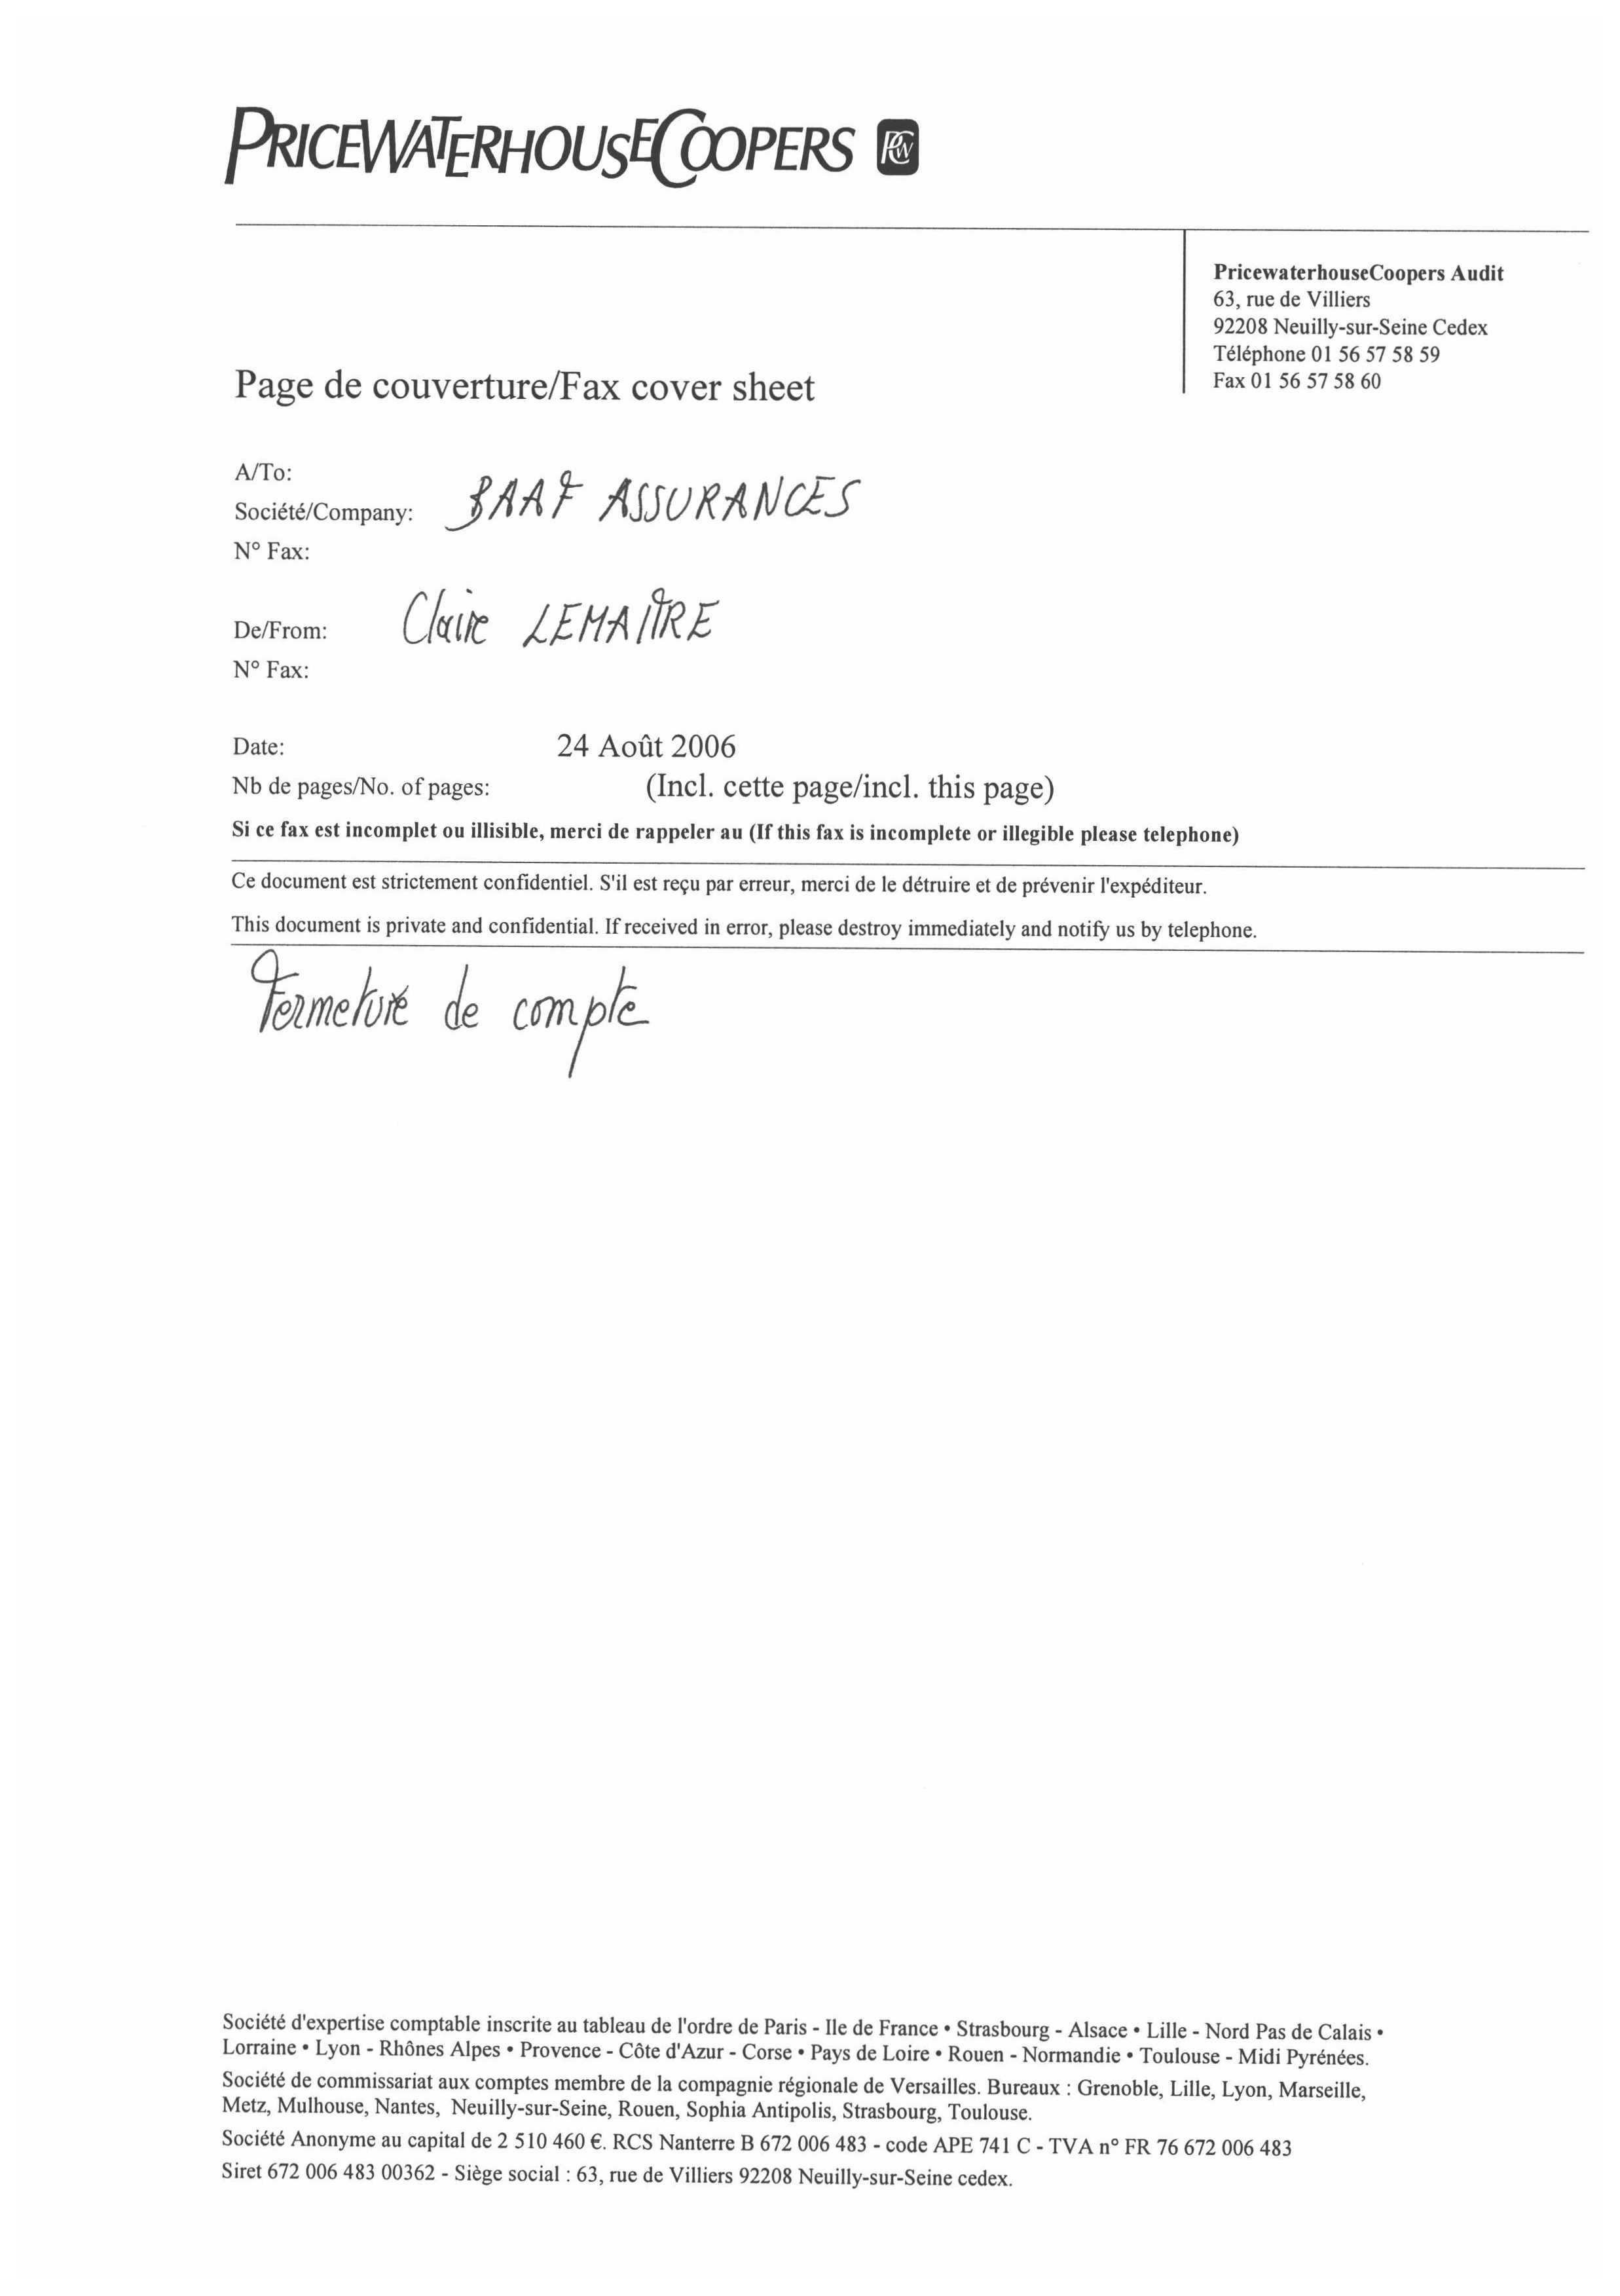 PRICEWATERHOUSECOOPERS PwC
PricewaterhouseCoopers Audit
63, rue de Villiers
92208 Neuilly-sur-Seine Cedex
Téléphone 01 56 57 58 59
Fax 01 56 57 58 60
Page de couverture/Fax cover sheet
A/To:
Société/Company: BAAF ASSURANCES
N° Fax:
De/From: Claire LEMAITRE
N° Fax:
Date: 24 Août 2006
Nb de pages/No. of pages: (Incl. cette page/incl. this page)
Si ce fax est incomplet ou illisible, merci de rappeler au (If this fax is incomplete or illegible please telephone)
Ce document est strictement confidentiel. S'il est reçu par erreur, merci de le détruire et de prévenir l'expéditeur.
This document is private and confidential. If received in error, please destroy immediately and notify us by telephone.
Fermeture de compte
Société d'expertise comptable inscrite au tableau de l'ordre de Paris - Ile de France • Strasbourg - Alsace • Lille - Nord Pas de Calais •
Lorraine • Lyon - Rhônes Alpes • Provence - Côte d'Azur - Corse • Pays de Loire • Rouen - Normandie • Toulouse - Midi Pyrénées.
Société de commissariat aux comptes membre de la compagnie régionale de Versailles. Bureaux : Grenoble, Lille, Lyon, Marseille,
Metz, Mulhouse, Nantes, Neuilly-sur-Seine, Rouen, Sophia Antipolis, Strasbourg, Toulouse.
Société Anonyme au capital de 2 510 460 €. RCS Nanterre B 672 006 483 - code APE 741 C - TVA n° FR 76 672 006 483
Siret 672 006 483 00362 - Siège social : 63, rue de Villiers 92208 Neuilly-sur-Seine cedex.